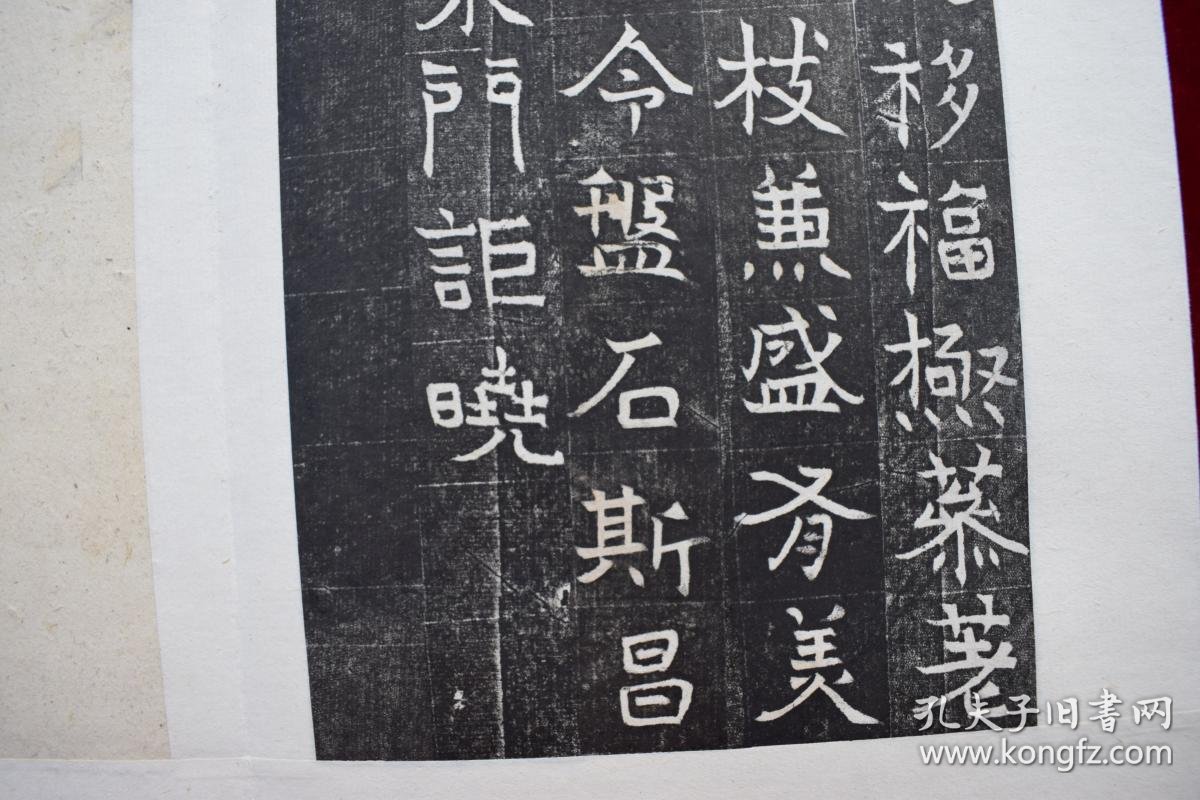 移福極
枝兼盛肴美
令盤石斯昌
門詎曉
孔夫子旧書网
www.kongfz.com